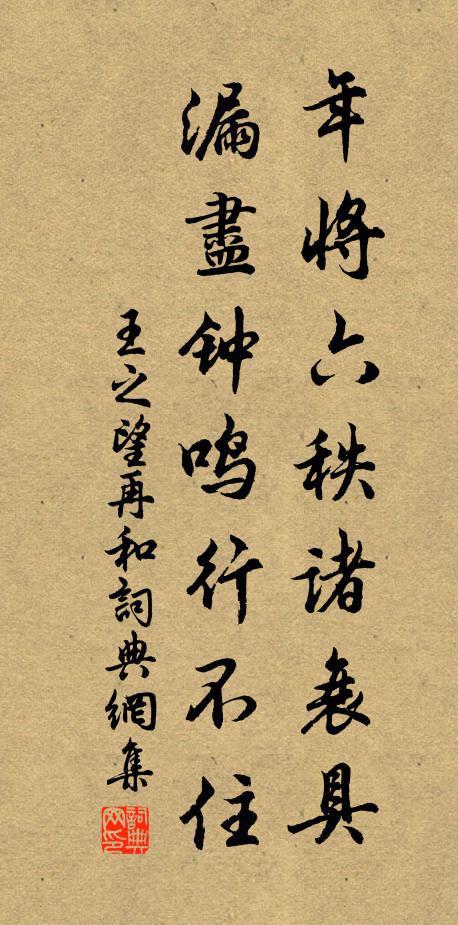 年将六秩诸衰具
漏盡钟鸣行不住
王之望再和詞典網集
詞典网印